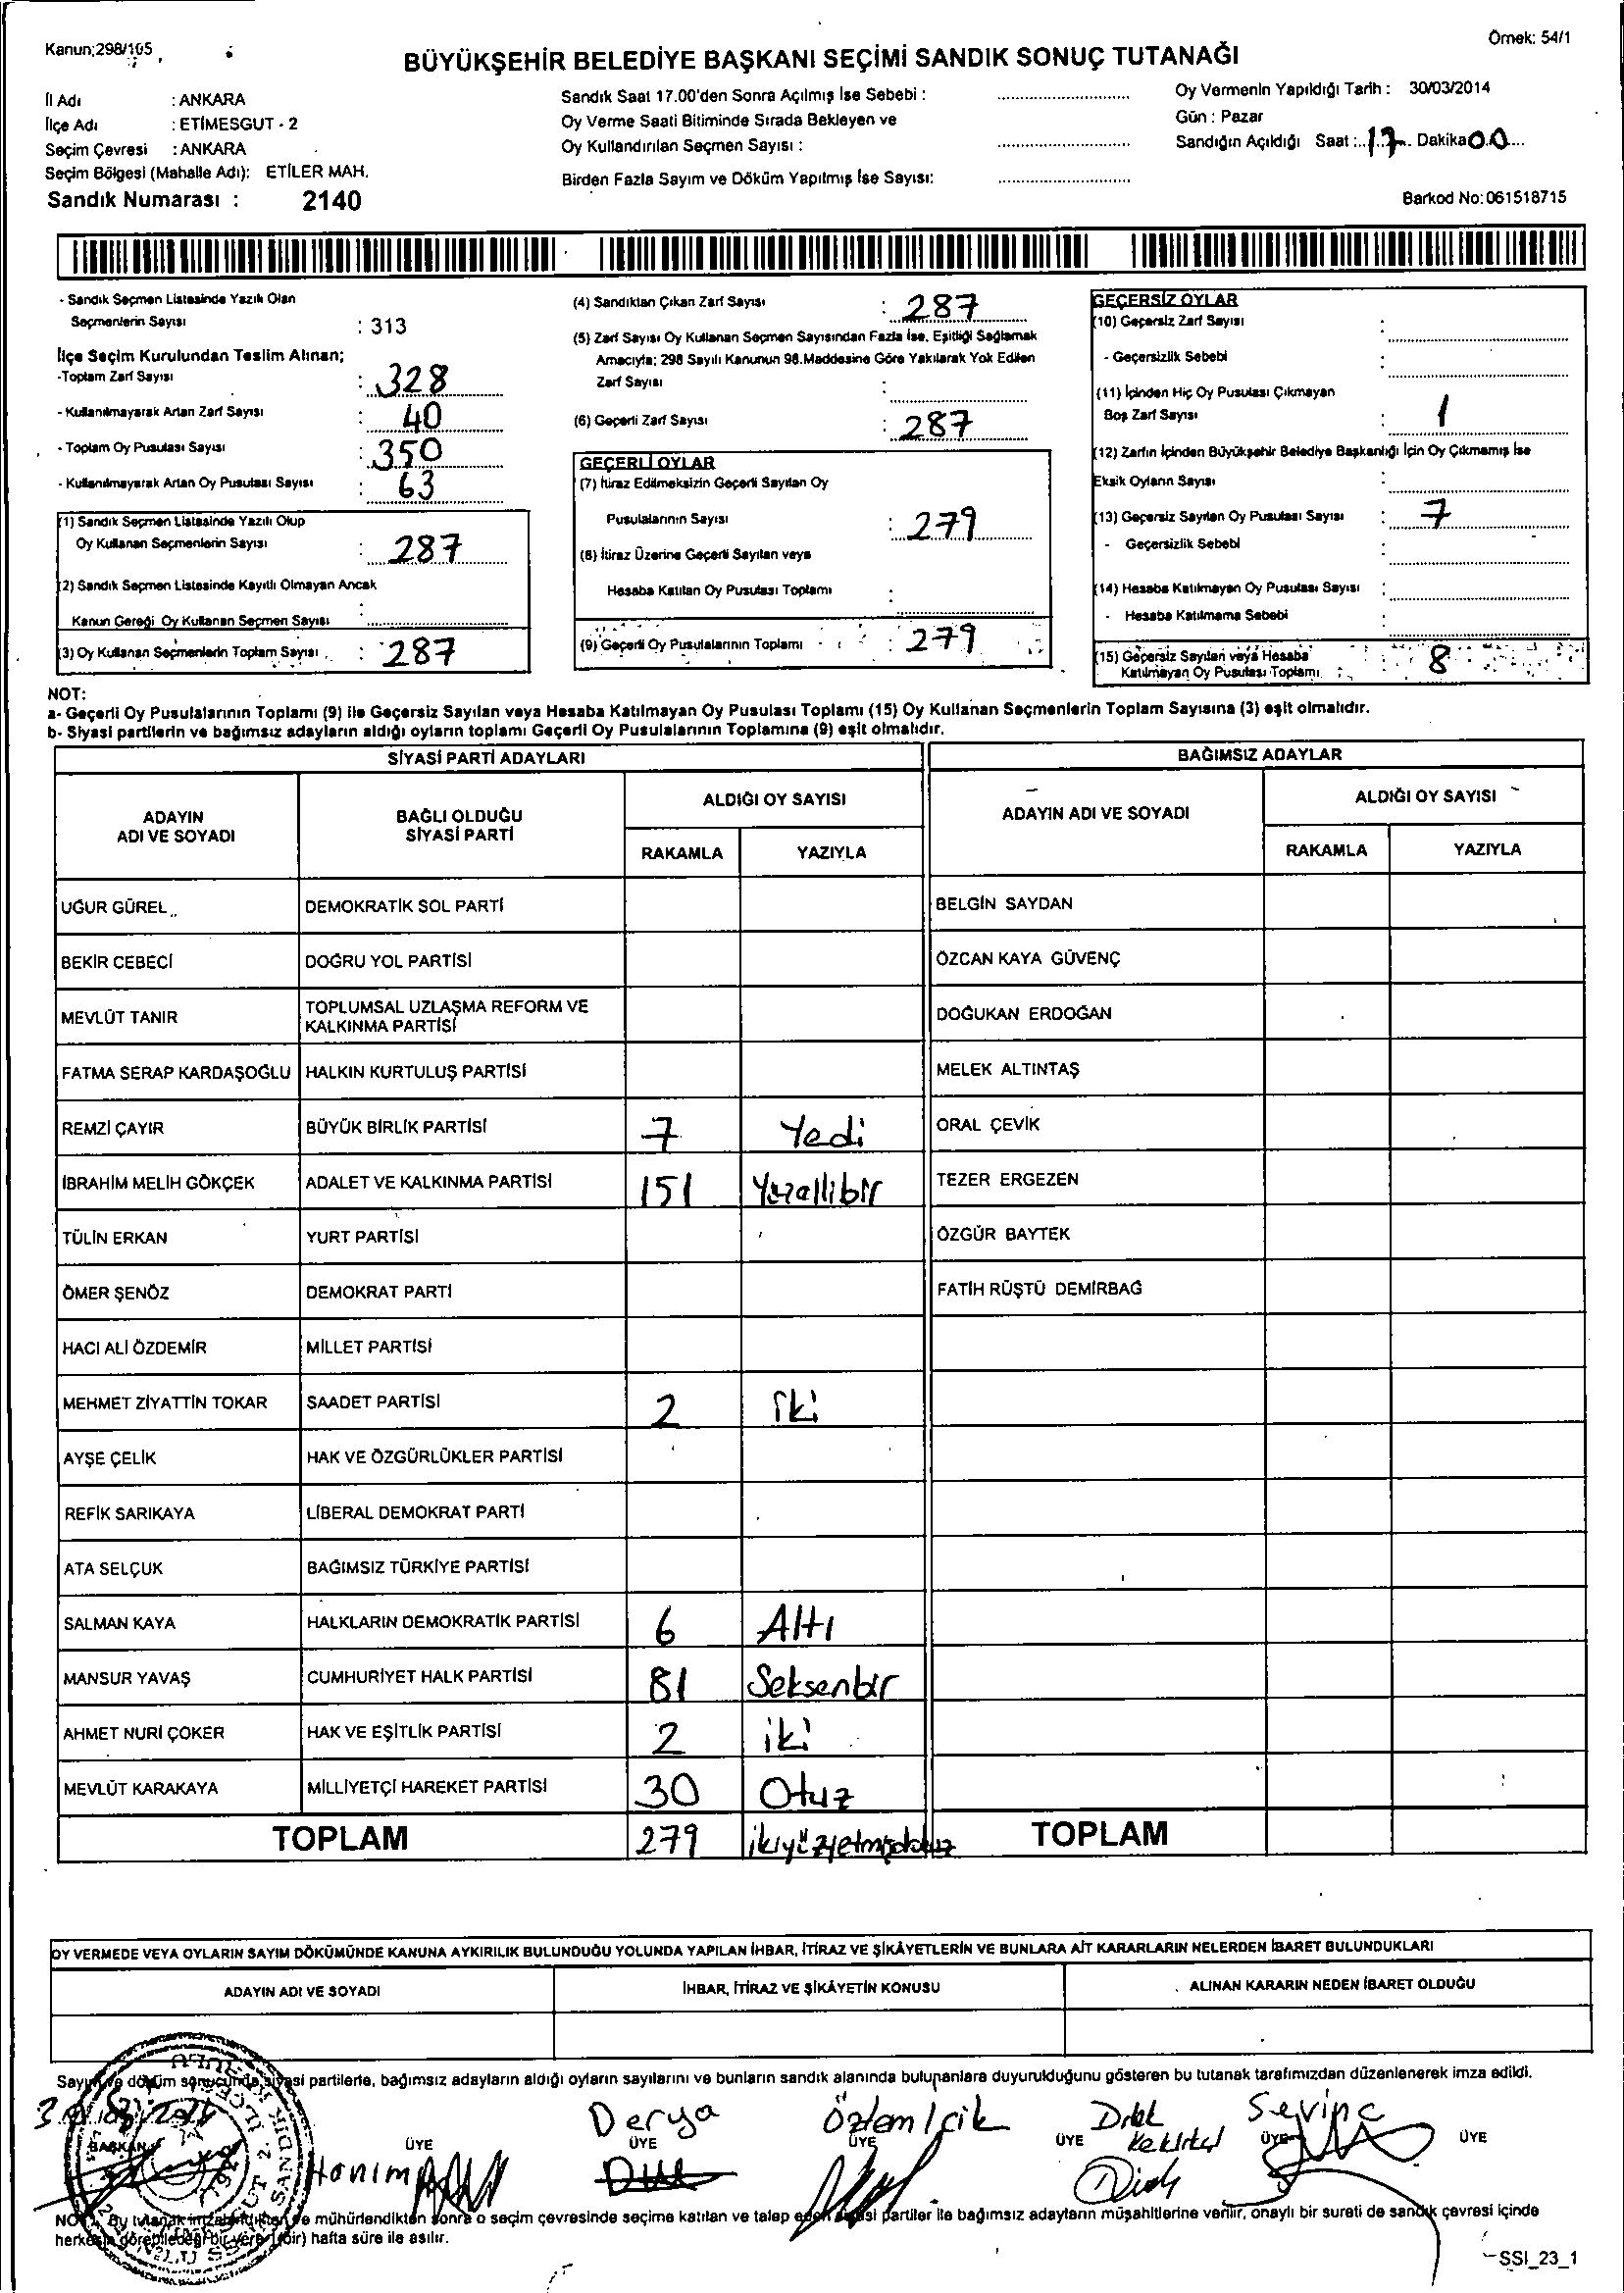 Kanun;298/105
Örnek: 54/1
BÜYÜKŞEHİR BELEDİYE BAŞKANI SEÇİMİ SANDIK SONUÇ TUTANAĞI
İl Adı : ANKARA
İlçe Adı : ETİMESGUT - 2
Seçim Çevresi : ANKARA
Seçim Bölgesi (Mahalle Adı): ETİLER MAH.
Sandık Numarası : 2140
Sandık Saat 17.00'den Sonra Açılmış İse Sebebi :
Oy Verme Saati Bitiminde Sırada Bekleyen ve
Oy Kullandırılan Seçmen Sayısı :
Birden Fazla Sayım ve Döküm Yapılmış İse Sayısı:
Oy Vermenin Yapıldığı Tarih : 30/03/2014
Gün : Pazar
Sandığın Açıldığı Saat : 17 Dakika 00
Barkod No: 061518715
- Sandık Seçmen Listesinde Yazılı Olan
Seçmenlerin Sayısı : 313
İlçe Seçim Kurulundan Teslim Alınan;
-Toplam Zarf Sayısı : 328
- Kullanılmayarak Artan Zarf Sayısı : 40
- Toplam Oy Pusulası Sayısı : 350
- Kullanılmayarak Artan Oy Pusulası Sayısı : 63
(1) Sandık Seçmen Listesinde Yazılı Olup
Oy Kullanan Seçmenlerin Sayısı : 287
(2) Sandık Seçmen Listesinde Kayıtlı Olmayan Ancak
Kanun Gereği Oy Kullanan Seçmen Sayısı :
(3) Oy Kullanan Seçmenlerin Toplam Sayısı : 287
(4) Sandıktan Çıkan Zarf Sayısı : 287
(5) Zarf Sayısı Oy Kullanan Seçmen Sayısından Fazla İse, Eşitliği Sağlamak
Amacıyla; 298 Sayılı Kanunun 98.Maddesine Göre Yakılarak Yok Edilen
Zarf Sayısı :
(6) Geçerli Zarf Sayısı : 287
GEÇERLİ OYLAR
(7) İtiraz Edilmeksizin Geçerli Sayılan Oy
Pusulalarının Sayısı : 279
(8) İtiraz Üzerine Geçerli Sayılan veya
Hesaba Katılan Oy Pusulası Toplamı :
(9) Geçerli Oy Pusulalarının Toplamı : 279
GEÇERSİZ OYLAR
(10) Geçersiz Zarf Sayısı :
- Geçersizlik Sebebi :
(11) İçinden Hiç Oy Pusulası Çıkmayan
Boş Zarf Sayısı : 1
(12) Zarfın İçinden Büyükşehir Belediye Başkanlığı İçin Oy Çıkmamış İse
Eksik Oyların Sayısı :
(13) Geçersiz Sayılan Oy Pusulası Sayısı : 7
- Geçersizlik Sebebi :
(14) Hesaba Katılmayan Oy Pusulası Sayısı :
- Hesaba Katılmama Sebebi :
(15) Geçersiz Sayılan veya Hesaba
Katılmayan Oy Pusulası Toplamı : 8
NOT:
a- Geçerli Oy Pusulalarının Toplamı (9) ile Geçersiz Sayılan veya Hesaba Katılmayan Oy Pusulası Toplamı (15) Oy Kullanan Seçmenlerin Toplam Sayısına (3) eşit olmalıdır.
b- Siyasi partilerin ve bağımsız adayların aldığı oyların toplamı Geçerli Oy Pusulalarının Toplamına (9) eşit olmalıdır.
SİYASİ PARTİ ADAYLARI BAĞIMSIZ ADAYLAR
ADAYIN ADI VE SOYADI BAĞLI OLDUĞU SİYASİ PARTİ ALDIĞI OY SAYISI ADAYIN ADI VE SOYADI ALDIĞI OY SAYISI
RAKAMLA YAZIYLA RAKAMLA YAZIYLA
UĞUR GÜREL DEMOKRATİK SOL PARTİ BELGİN SAYDAN
BEKİR CEBECİ DOĞRU YOL PARTİSİ ÖZCAN KAYA GÜVENÇ
MEVLÜT TANIR TOPLUMSAL UZLAŞMA REFORM VE KALKINMA PARTİSİ DOĞUKAN ERDOĞAN
FATMA SERAP KARDAŞOĞLU HALKIN KURTULUŞ PARTİSİ MELEK ALTINTAŞ
REMZİ ÇAYIR BÜYÜK BİRLİK PARTİSİ 7 Yedi ORAL ÇEVİK
İBRAHİM MELİH GÖKÇEK ADALET VE KALKINMA PARTİSİ 151 Yüzellibir TEZER ERGEZEN
TÜLİN ERKAN YURT PARTİSİ ÖZGÜR BAYTEK
ÖMER ŞENÖZ DEMOKRAT PARTİ FATİH RÜŞTÜ DEMİRBAĞ
HACI ALİ ÖZDEMİR MİLLET PARTİSİ
MEHMET ZİYATTİN TOKAR SAADET PARTİSİ 2 İki
AYŞE ÇELİK HAK VE ÖZGÜRLÜKLER PARTİSİ
REFİK SARIKAYA LİBERAL DEMOKRAT PARTİ
ATA SELÇUK BAĞIMSIZ TÜRKİYE PARTİSİ
SALMAN KAYA HALKLARIN DEMOKRATİK PARTİSİ 6 Altı
MANSUR YAVAŞ CUMHURİYET HALK PARTİSİ 81 Seksenbir
AHMET NURİ ÇOKER HAK VE EŞİTLİK PARTİSİ 2 iki
MEVLÜT KARAKAYA MİLLİYETÇİ HAREKET PARTİSİ 30 Otuz
TOPLAM 279 ikiyüzyetmişdokuz TOPLAM
OY VERMEDE VEYA OYLARIN SAYIM DÖKÜMÜNDE KANUNA AYKIRILIK BULUNDUĞU YOLUNDA YAPILAN İHBAR, İTİRAZ VE ŞİKÂYETLERİN VE BUNLARA AİT KARARLARIN NELERDEN İBARET BULUNDUKLARI
ADAYIN ADI VE SOYADI İHBAR, İTİRAZ VE ŞİKÂYETİN KONUSU ALINAN KARARIN NEDEN İBARET OLDUĞU
Sayım ve döküm sonucunda, siyasi partilerle, bağımsız adayların aldığı oyların sayılarını ve bunların sandık alanında bulunanlara duyurulduğunu gösteren bu tutanak tarafımızdan düzenlenerek imza edildi.
Derya Özlem Sevinç
BAŞKAN ÜYE ÜYE ÜYE ÜYE ÜYE ÜYE
Hanım
NOT: Bu tutanak imzalandıktan ve mühürlendikten sonra o seçim çevresinde seçime katılan ve talep eden siyasi partiler ile bağımsız adayların müşahitlerine verilir, onaylı bir sureti de sandık çevresi içinde
herkesin görebileceği bir yere 1 (bir) hafta süre ile asılır.
SSI_23_1